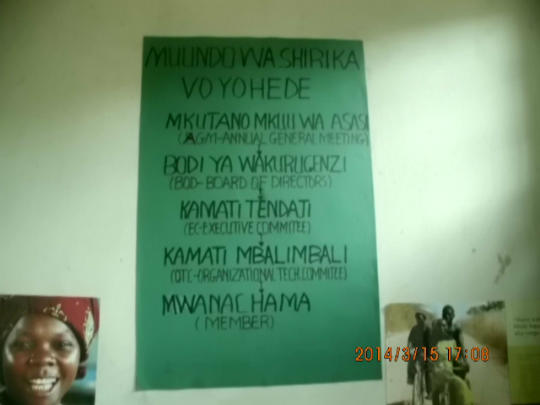 MUUNDO WA SHIRIKA
VOYOHEDE
MKUTANO MKUU WA ASASI
(AGM-ANNUAL GENERAL MEETING)
BODI YA WAKURUGENZI
(BOD-BOARD OF DIRECTORS)
KAMATI TENDAJI
(EC-EXECUTIVE COMMITEE)
KAMATI MBALIMBALI
(OTC-ORGANIZATIONAL TECH.COMMITEE)
MWANACHAMA
(MEMBER)
2014/3/15 17:08